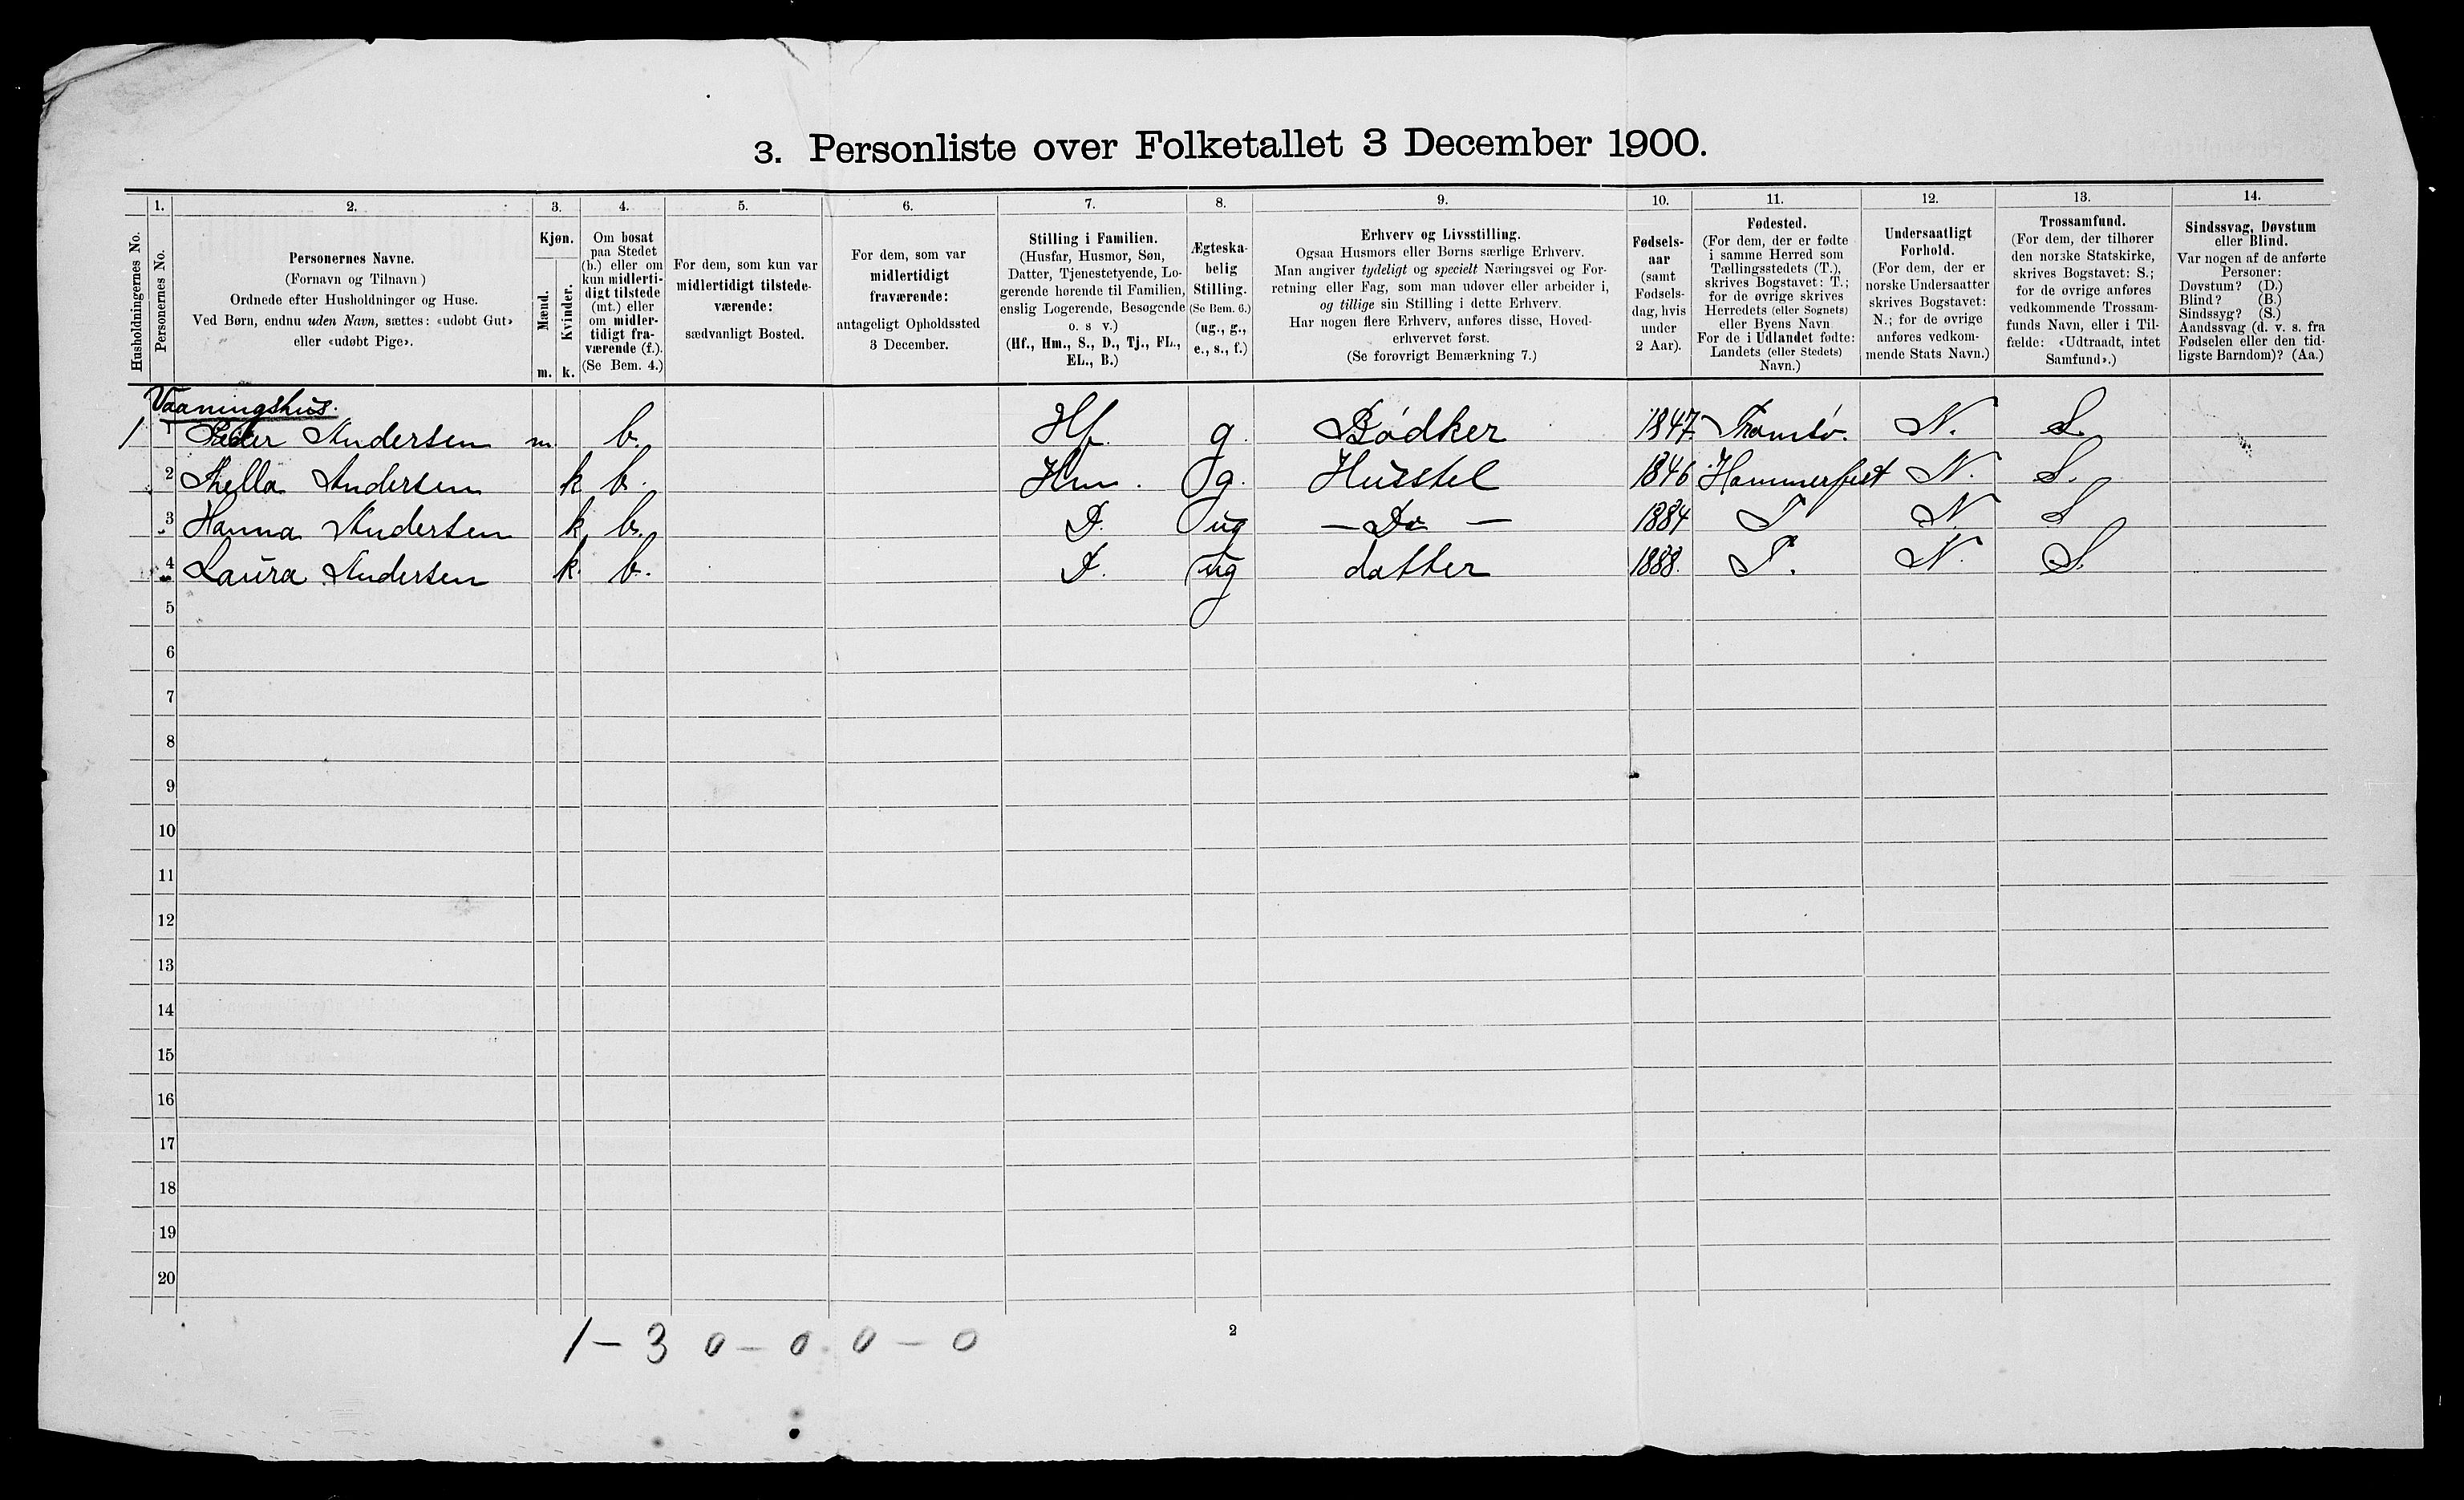 3. Personliste over Folketallet 3 December 1900.
Husholdningernes No.
1.
Personernes No.
2.
Personernes Navne.
(Fornavn og Tilnavn)
Ordnede efter Husholdninger og Huse.
Ved Børn, endnu uden Navn, sættes: «udøbt Gut»
eller «udøbt Pige».
3.
Kjøn.
Mænd.
Kvinder.
m. k.
4.
Om bosat
paa Stedet
(b.) eller om
kun midlerti-
digt tilstede
(mt.) eller
om midler-
tidigt fra-
værende (f.).
(Se Bem. 4.)
5.
For dem, som kun var
midlertidigt tilstede-
værende:
sædvanligt Bosted.
6.
For dem, som var
midlertidigt
fraværende:
antageligt Opholdssted
3 December.
7.
Stilling i Familien.
(Husfar, Husmor, Søn,
Datter, Tjenestetyende, Lo-
gerende hørende til Familien,
enslig Logerende, Besøgende
o. s v.)
(Hf., Hm., S., D., Tj., FL.,
EL., B.)
8.
Ægteska-
belig
Stilling.
(Se Bem. 6.)
(ug., g.,
e., s., f.)
9.
Erhverv og Livsstilling.
Ogsaa Husmors eller Børns særlige Erhverv.
Man angiver tydeligt og specielt Næringsvei og For-
retning eller Fag, som man udøver eller arbeider i,
og tillige sin Stilling i dette Erhverv.
Har nogen flere Erhverv, anføres disse, Hoved-
erhvervet først.
(Se forøvrigt Bemærkning 7.)
10.
Fødsels-
aar
(samt
Fødsels-
dag, hvis
under
2 Aar).
11.
Fødested.
(For dem, der er fødte
i samme Herred som
Tællingsstedets (T.),
skrives Bogstavet: T.;
for de øvrige skrives
Herredets (eller Sognets)
eller Byens Navn
For de i Udlandet fødte:
Landets (eller Stedets)
Navn.)
12.
Undersaatligt
Forhold.
(For dem, der er
norske Undersaatter
skrives Bogstavet:
N.; for de øvrige
anføres vedkom-
mende Stats Navn.)
13.
Trossamfund.
(For dem, der tilhører
den norske Statskirke,
skrives Bogstavet: S.;
for de øvrige anføres
vedkommende Trossam-
funds Navn, eller i Til-
fælde: «Udtraadt, intet
Samfund».)
14.
Sindssvag, Døvstum
eller Blind.
Var nogen af de anførte
Personer:
Døvstum? (D.)
Blind? (B.)
Sindssyg? (S.)
Aandssvag (d. v. s. fra
Fødselen eller den tid-
ligste Barndom)? (Aa.)
Vaaningshus.
1 1 Peder Andersen m. b. Hf. g. Bødker 1847. Tromsø. N. S.
2 Andersen k b. Hm. g. Husstel 1846 Hammerfest N. S.
3 Hanna Andersen k b. D. ug — Do — 1884 T N. S
4 Laura Andersen k. b. D. ug datter 1888. T. N. S.
5
6
7
8
9
10
11
12
13
14
15
16
17
18
19
20
1 – 3 0 – 0 0 – 0
2